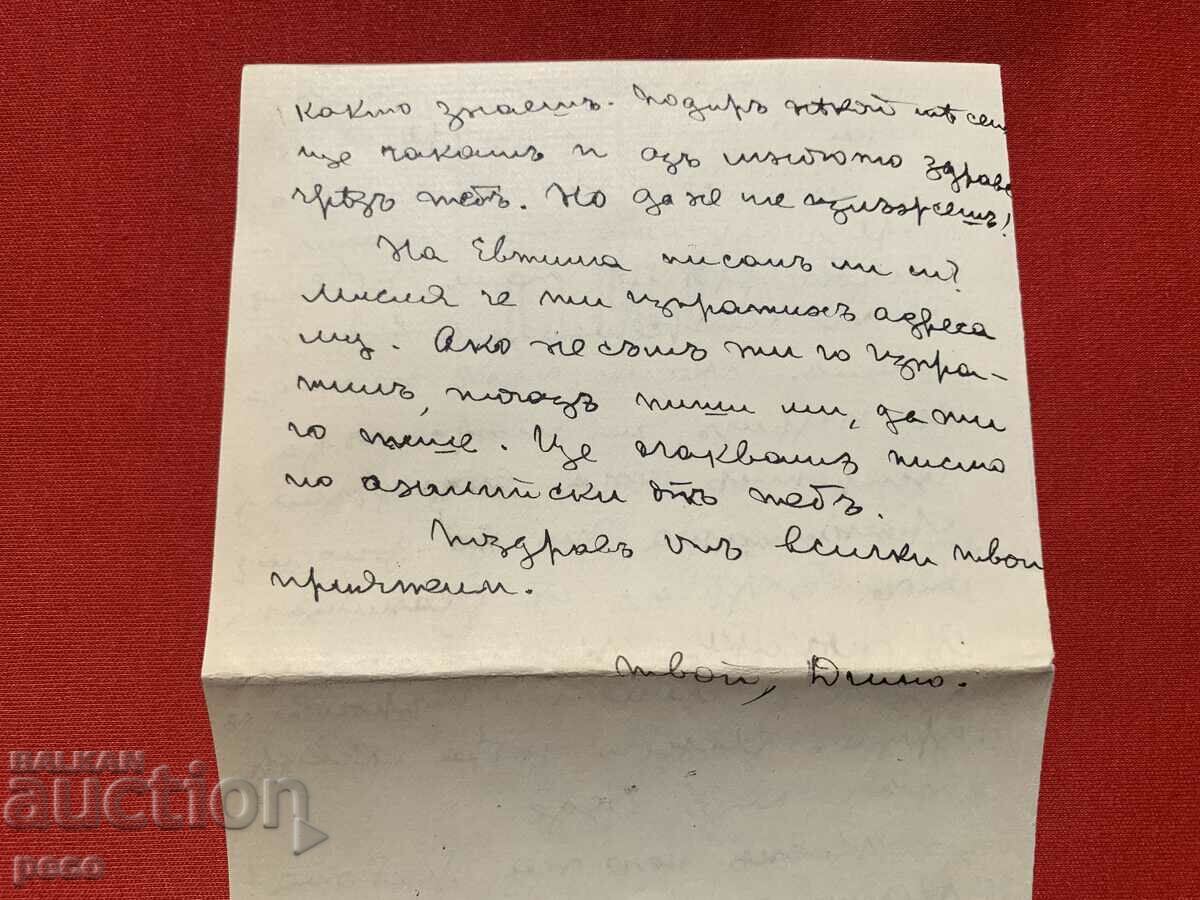 както знаешъ. Подиръ нѣкой мѣсец
ще чакамъ и азъ здраве
чрѣзъ тебъ. Но да не ме излъжешъ!
На Евтима писалъ ли си?
Мисля че ти изпратихъ адреса
му. Ако не съмъ ти го изпра-
тилъ, тогазъ пиши ми, да ти
го пише. Ще чаквамъ писмо
по английски отъ тебъ.
Поздравъ отъ всички твои
приятели.
твой, Димо.
BALKAN
auction
peso